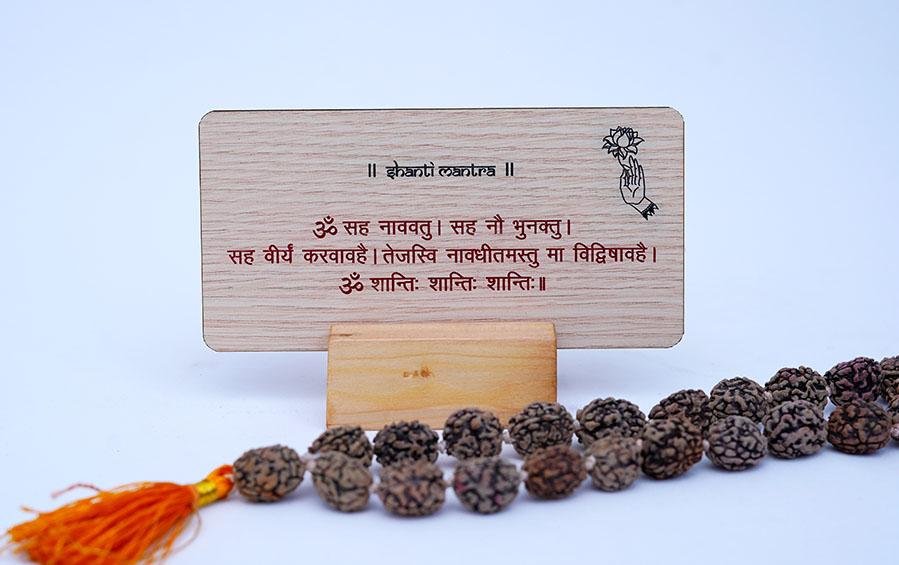 ॥ shanti mantra ॥
ॐ सह नाववतु। सह नौ भुनक्तु।
सह वीर्यं करवावहै। तेजस्वि नावधीतमस्तु मा विद्विषावहै।
ॐ शान्तिः शान्तिः शान्तिः॥